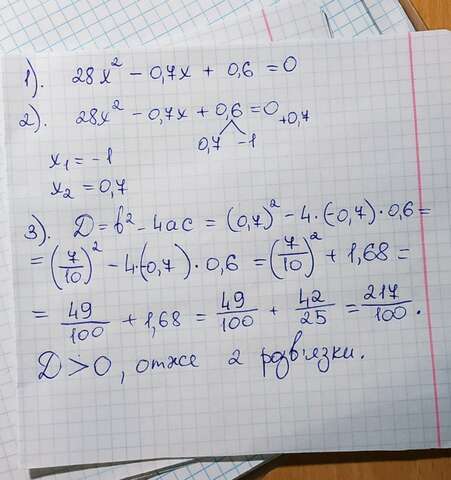 1). 28x² − 0,7x + 0,6 = 0
2). 28x² − 0,7x + 0,6 = 0 +0,7
0,7 -1
x₁ = −1
x₂ = 0,7
3). D = b² − 4ac = (0,7)² − 4·(−0,7)·0,6 =
= (7/10)² − 4·(−0,7)·0,6 = (7/10)² + 1,68 =
= 49/100 + 1,68 = 49/100 + 42/25 = 217/100.
D > 0, отже 2 розв'язки.